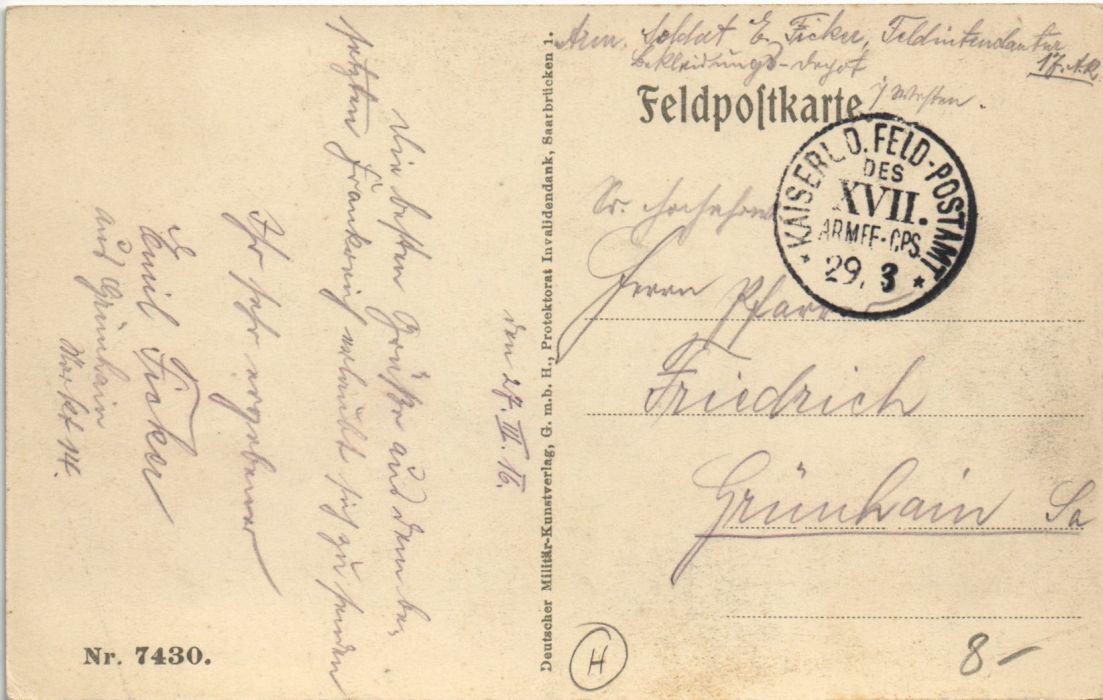 Arm. Soldat E. Ficker, Feldintendantur
Bekleidungs-Depot 17. A.K.
i/ Westen.
Feldpostkarte
KAISERL. D. FELD-POSTAMT
DES
XVII.
ARMEE-CPS.
29. 3
Sr. Hochehrw
Herrn Pfarr
Friedrich
Grünhain Sa
den 27. III. 16.
Die besten Grüße aus dem be-
setzten Frankreich erlaubt sich zu senden
Ihr sehr ergebener
Emil Ficker
aus Grünhain
Markt 14.
Deutscher Militär-Kunstverlag, G. m. b. H., Protektorat Invalidendank, Saarbrücken 1.
Nr. 7430.
H
8-